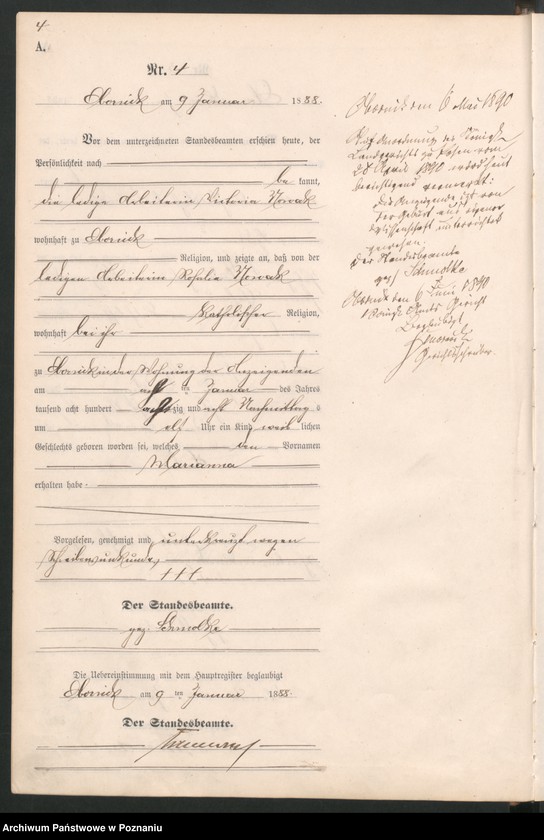 4
A.
Nr. 4
Obornick am 9 Januar 1888.
Vor dem unterzeichneten Standesbeamten erschien heute, der
Persönlichkeit nach
be kannt,
die ledige Arbeiterin Victoria Nowak
wohnhaft zu Obornick
Religion, und zeigte an, daß von der
ledigen Arbeiterin Rosalie Nowak
Katholischer Religion,
wohnhaft bei ihr
zu Obornick in der Wohnung der Anzeigenden
am acht ten Januar des Jahres
tausend acht hundert achtzig und acht Nachmittags
um elf Uhr ein Kind weib lichen
Geschlechts geboren worden sei, welches den Vornamen
Marianna
erhalten habe.
Vorgelesen, genehmigt und unterkreuzt wegen
Schreibensunkunde,
+++
Der Standesbeamte.
gez. Schmolke
Die Uebereinstimmung mit dem Hauptregister beglaubigt
Obornick am 9 ten Januar 1888.
Der Standesbeamte.
Obornik den 6 Mai 1890
Auf Anordnung des Königl.
Landgerichts zu Posen vom
28 April 1890 wird
berichtigend vermerkt:
die Anzeigende ist von
der Geburt aus eigener
Wissenschaft unterrichtet
gewesen.
Der Standesbeamte
gez. Schmolke
Obornik den 6 Juni 1890
Königl. Amts Gericht
Beglaubigt
Gerichtsschreiber.
Archiwum Państwowe w Poznaniu